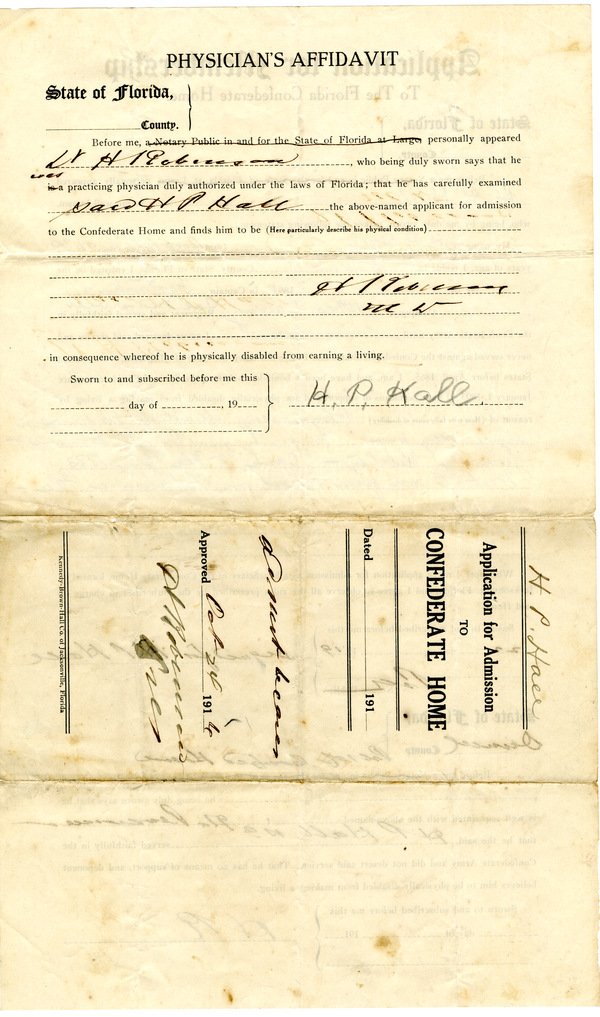 PHYSICIAN'S AFFIDAVIT
State of Florida,
County.
Before me, a Notary Public in and for the State of Florida at Large, personally appeared
Dr H Robinson, who being duly sworn says that he
was
is a practicing physician duly authorized under the laws of Florida; that he has carefully examined
said H P Hall the above-named applicant for admission
to the Confederate Home and finds him to be (Here particularly describe his physical condition)
H Robinson
M D
in consequence whereof he is physically disabled from earning a living.
Sworn to and subscribed before me this
day of , 19
H. P. Hall.
H. P. Hall
Duval
Application for Admission
TO
CONFEDERATE HOME
Dated 191
Approved Oct 24 1916
H Robinson
Pres
Kennedy-Brown-Hall Co. of Jacksonville, Florida